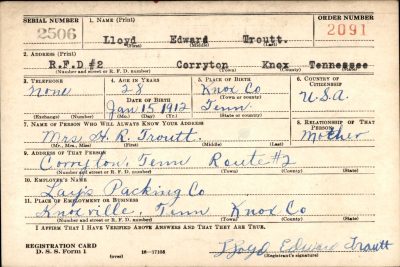 SERIAL NUMBER 1. NAME (Print) ORDER NUMBER
2506 Lloyd Edward Troutt. 2091
(First) (Middle) (Last)
2. ADDRESS (Print)
R.F.D #2 Corryton Knox Tennessee
(Number and street or R. F. D. number) (Town) (County) (State)
3. TELEPHONE 4. AGE IN YEARS 5. PLACE OF BIRTH 6. COUNTRY OF CITIZENSHIP
None 28 Knox Co
DATE OF BIRTH (Town or county) U.S.A
Jan 15 1912 Tenn.
(Exchange) (Number) (Mo.) (Day) (Yr.) (State or country)
7. NAME OF PERSON WHO WILL ALWAYS KNOW YOUR ADDRESS 8. RELATIONSHIP OF THAT PERSON
Mrs H. R. Troutt. Mother
(Mr., Mrs., Miss) (First) (Middle) (Last)
9. ADDRESS OF THAT PERSON
Corryton, Tenn Route #2
(Number and street or R. F. D. number) (Town) (County) (State)
10. EMPLOYER'S NAME
Lay's Packing Co
11. PLACE OF EMPLOYMENT OR BUSINESS
Knoxville, Tenn Knox Co
(Number and street or R. F. D. number) (Town) (County) (State)
I AFFIRM THAT I HAVE VERIFIED ABOVE ANSWERS AND THAT THEY ARE TRUE.
REGISTRATION CARD
D. S. S. Form 1 (over) 16—17105 Lloyd Edward Troutt
(Registrant's signature)